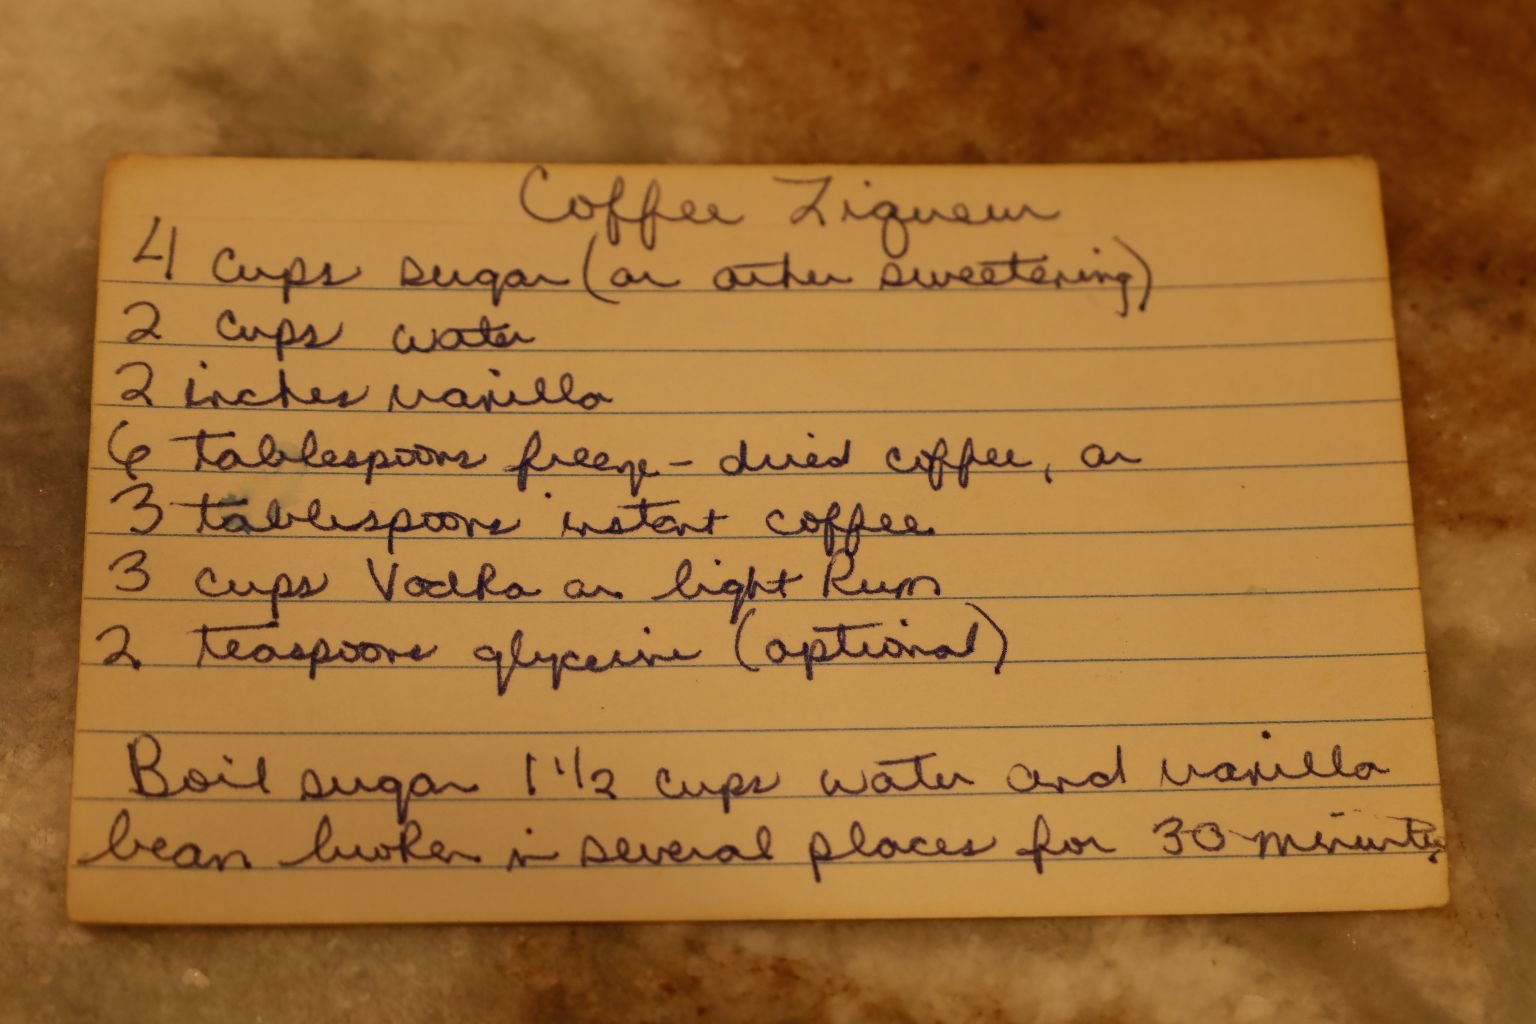 Coffee Liqueur
4 cups sugar (or other sweetening)
2 cups water
2 inches vanilla
6 tablespoons freeze-dried coffee, or
3 tablespoons instant coffee
3 cups Vodka or light Rum
2 teaspoons glycerine (optional)
Boil sugar 1 1/2 cups water and vanilla
bean broken in several places for 30 minutes